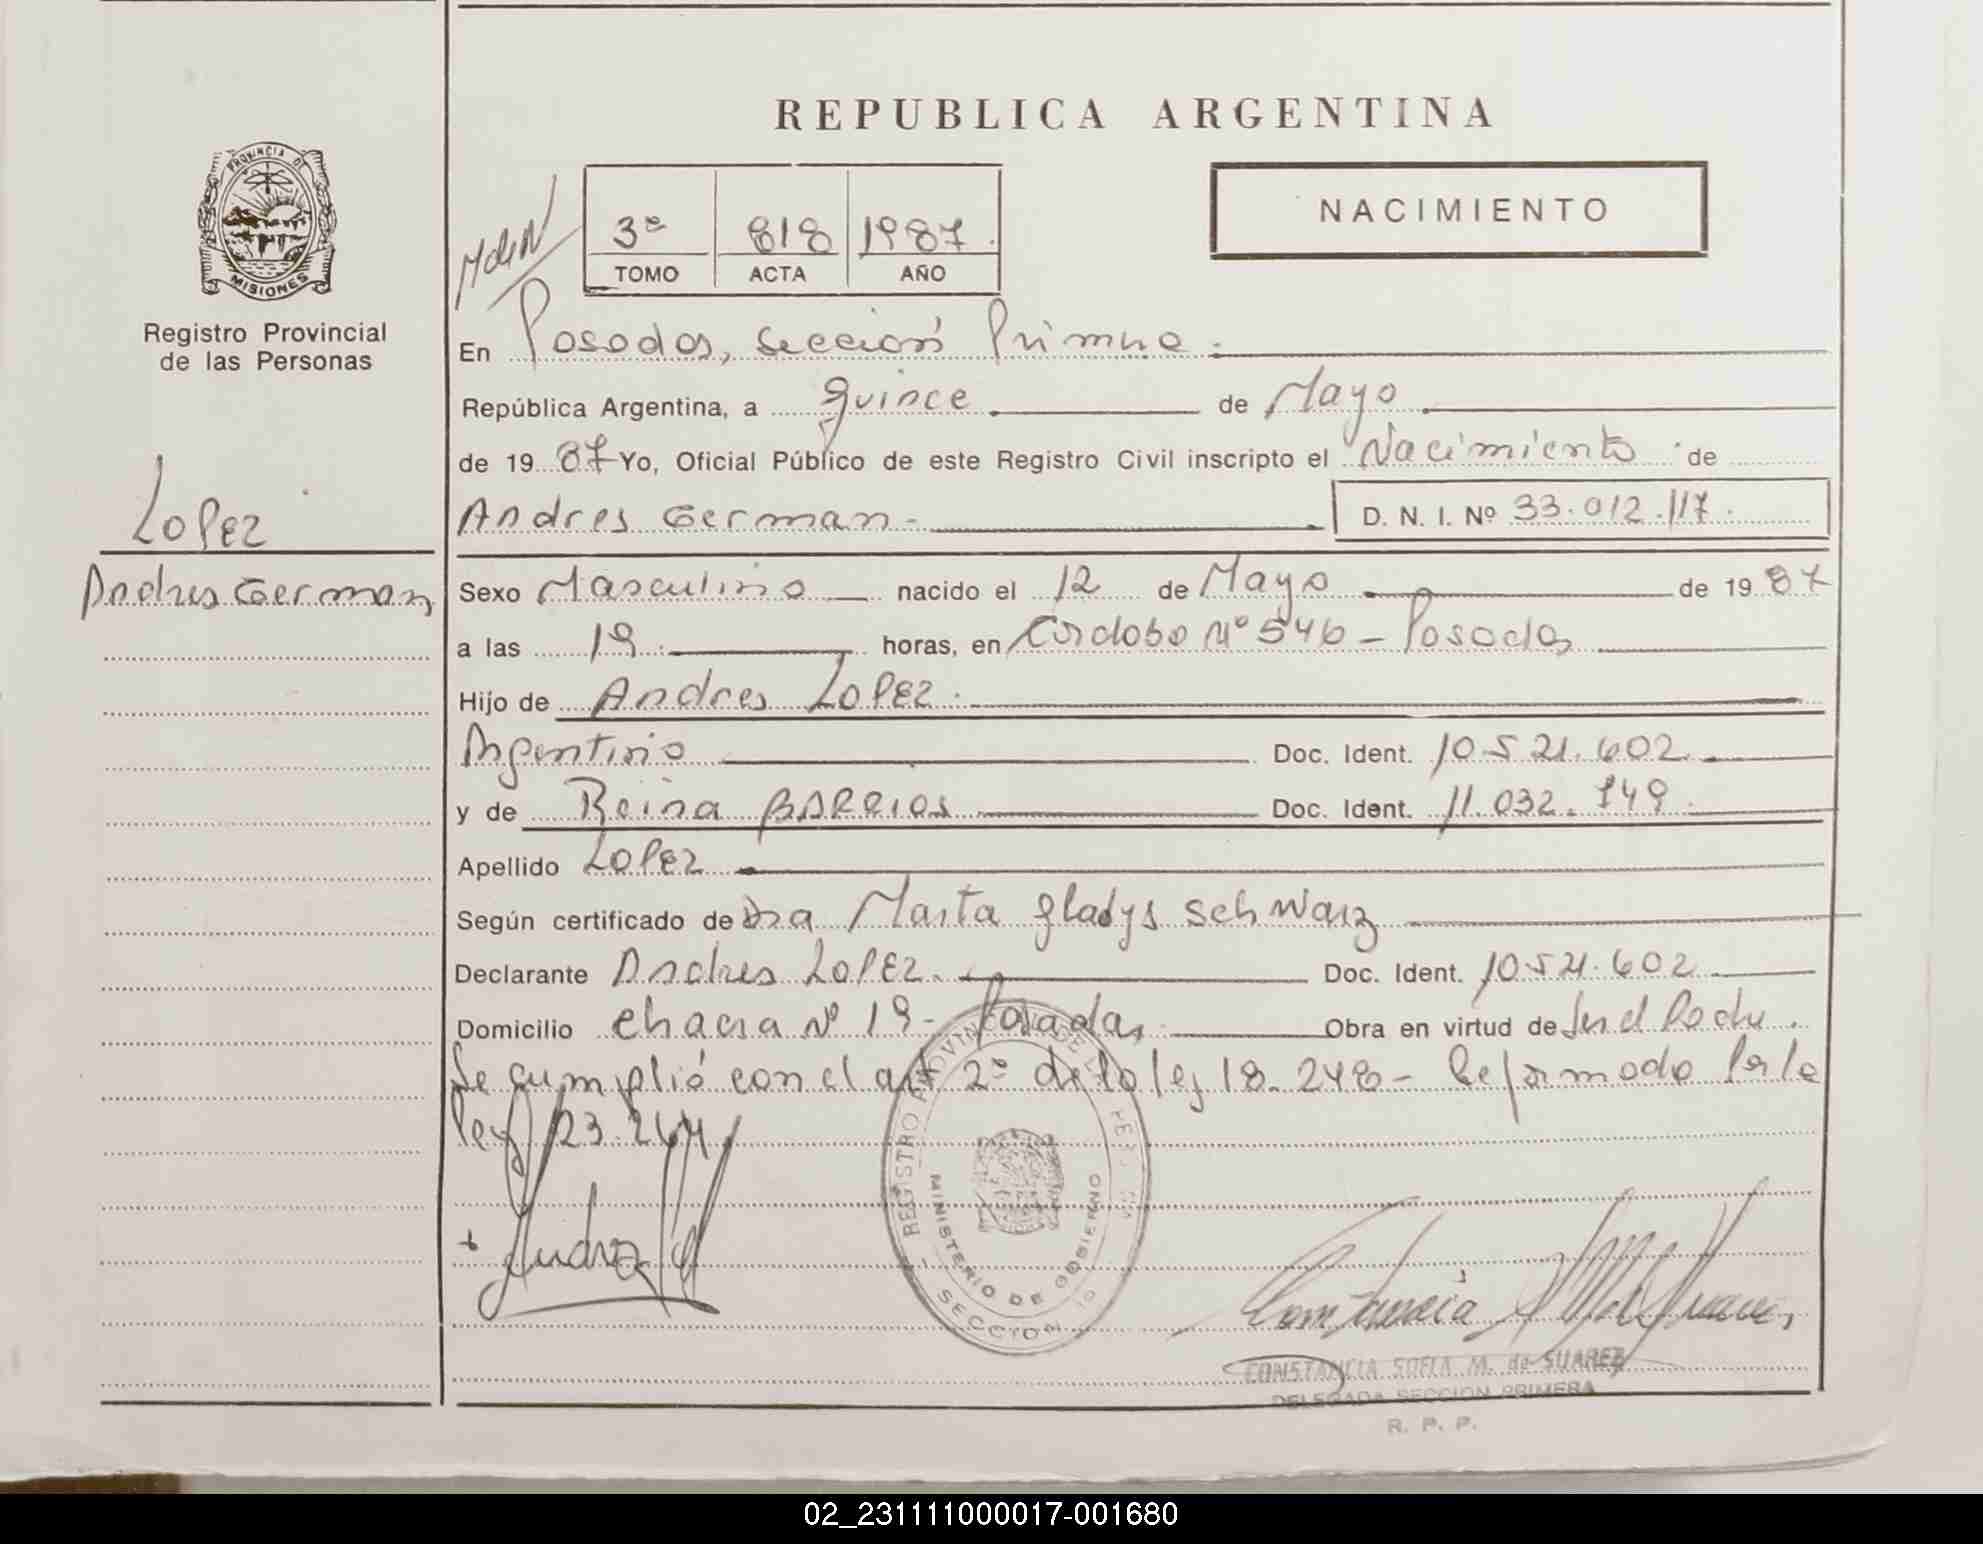 REPUBLICA ARGENTINA
PROVINCIA DE
MISIONES
Registro Provincial
de las Personas
3º 818 1987.
TOMO ACTA AÑO
NACIMIENTO
En Posadas, Sección Primera.
República Argentina, a quince de Mayo
de 1987 Yo, Oficial Público de este Registro Civil inscripto el Nacimiento de
Andres German. D. N. I. Nº 33.012.117.
LOPEZ
Andres German
Sexo Masculino nacido el 12 de Mayo de 1987
a las 19 horas, en Cordoba Nº 546 - Posadas
Hijo de Andres LOPEZ.
Argentino Doc. Ident. 10.521.602.
y de Reina BARRIOS Doc. Ident. 11.032.749.
Apellido LOPEZ
Según certificado de Dra Marta Gladys Schwarz
Declarante Andres LOPEZ. Doc. Ident. 10.521.602
Domicilio Chacra Nº 19 - Posadas. Obra en virtud de Ser el Padre.
Se cumplió con el art 2º de la ley 18.248 - Reformado Por la
ley 23.264
REGISTRO PROVINCIAL DE
MINISTERIO DE GOBIERNO
SECCION 1a
CONSTANCIA SOFIA M. de SUAREZ
DELEGADA SECCION PRIMERA
R. P. P.
02_231111000017-001680